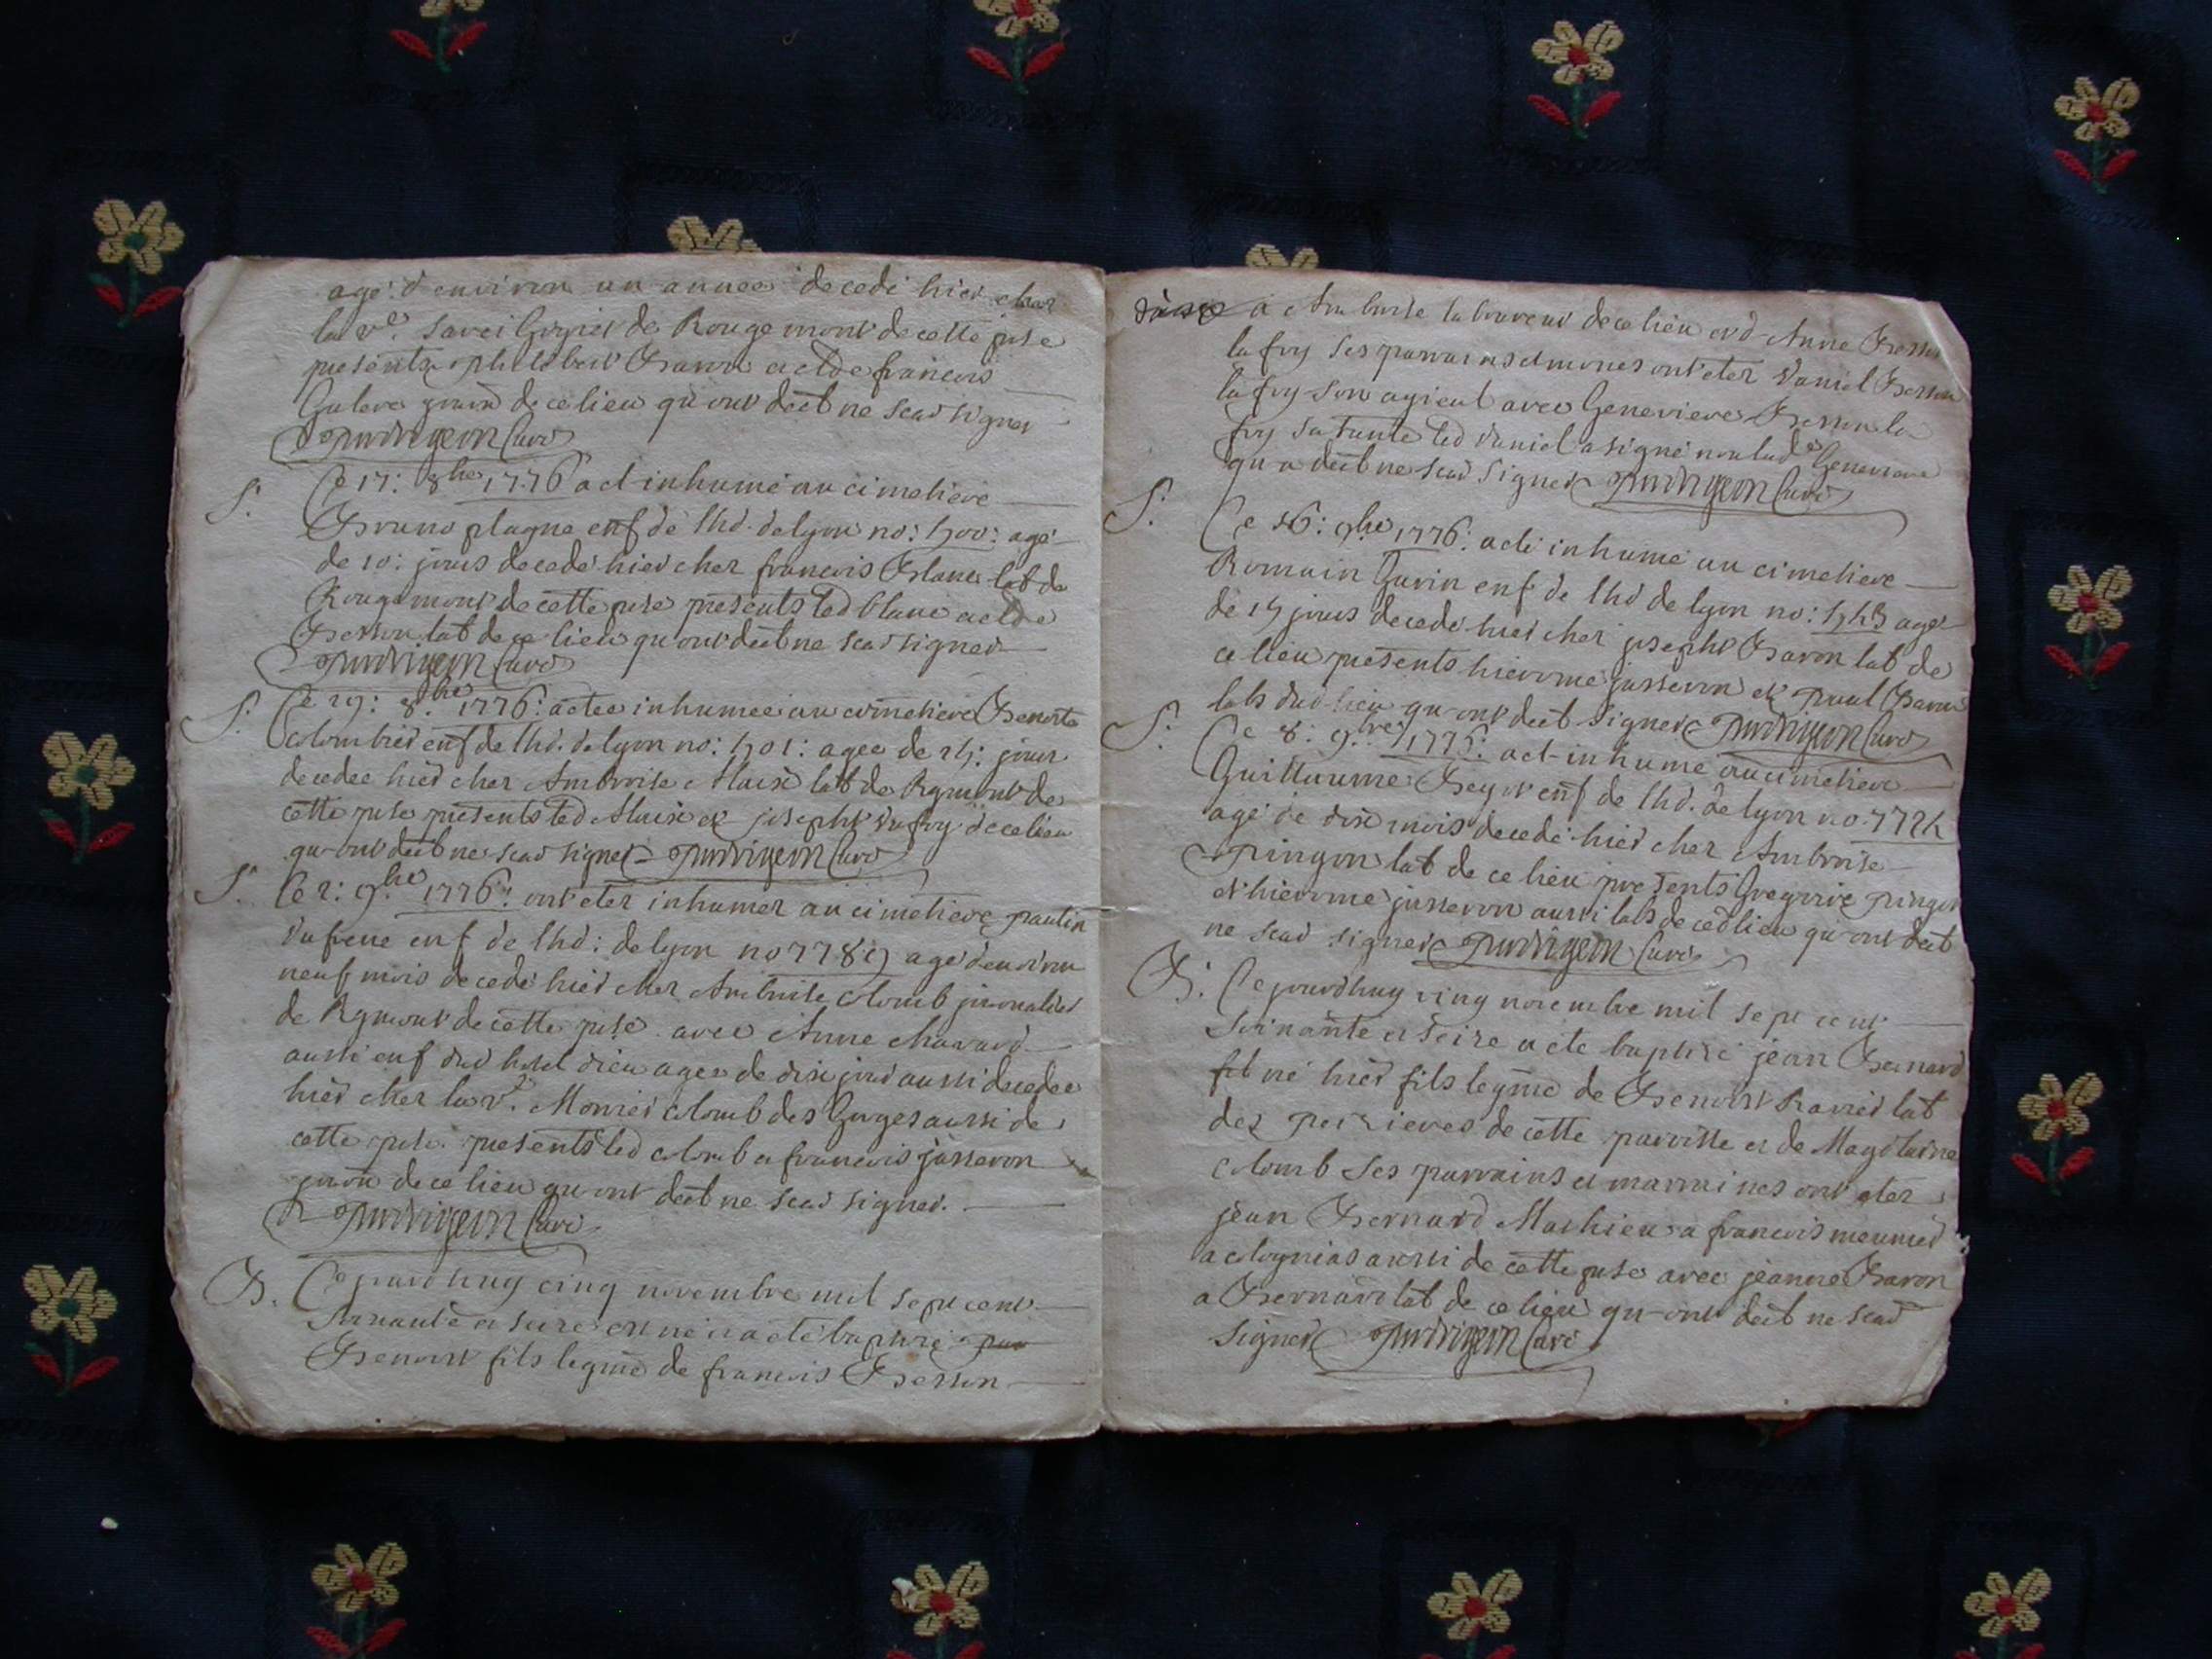 agé d environ un année decedé hier chez
la ve. de Rougemont de cette pse
presents philibert Baron et de francois
de ce lieu qu ont deet ne scav signer
Curé
S. Ce 17: 8bre 1776 a et inhumé au cimetiere
Bruno plagne enf de lhd. de lyon no: 500: agé
de 10: jours decedé hier chez francois Blanc lab de
Rougemont de cette pse presents led blanc et de
Besson lab de ce lieu qu ont deet ne scav signer
Curé
S. Ce 29: 8bre 1776: a etee inhumee au cimetiere Benoite
Colombier enf de lhd. de lyon no: 501: agee de 25: jour
decedee hier chez Ambroise Alaisé lab de Rgmont de
cette pse presents led Alaisé et joseph dufoy de ce lieu
qu ont deet ne scav signer Curé
S. Ce 2: 9bre 1776: ont eter inhumer au cimetiere paulin
dufrene enf de lhd: de lyon no 7789 agé d environ
neuf mois decedé hier chez Ambroise Colomb journalier
de Rgmont de cette pse avec Anne chavard
aussi enf dud hotel dieu agee de dixe jour aussi decedee
hier chez la ve. Monnier Colomb des Gorges aussi de
cette pse. presents led Colomb et francois josseron
de ce lieu qu ont deet ne scav signer.
Curé
B. Ce jourdhuy cinq novembre mil sept cent
soixante et seize est né et a eté baptizé
Benoist fils legme de francois Besson
a Ambroise laboureur de ce lieu et d Anne Besson
lafoy ses parrains et mones ont eter daniel Besson
lafoy son ayieul avec Genevieve Besson la
foy sa tante led daniel a signé non lade Genevieve
qu a deet ne scav signer Curé
S. Ce 16: 9bre 1776: a eté inhumé au cimetiere
Romain Garin enf de lhd de lyon no: 543 agé
de 15 jours decedé hier chez joseph Baron lab de
ce lieu presents hierome josseron et paul Baron
labs dud lieu qu ont deet signer Curé
S. Ce 8: 9bre 1776: a et inhumé au cimetiere
Guillaume enf de lhd. de lyon no 7724
agé de dixe mois decedé hier chez Ambroise
pingon lab de ce lieu presents Gregoire pingon
et hierome josseron aussi labs de ced lieu qu ont deet
ne scav signer Curé
B. Ce jourdhuy cinq novembre mil sept cent
soixante et seize a eté baptizé jean Bernard
né hier fils legme de Benoist Ravier lab
des perrieres de cette paroisse et de Magdelaine
Colomb ses parrains et marraines ont eter
jean Bernard Mathieu a francois meunier
a colognias aussi de cette pse avec jeanne Baron
a Bernard lab de ce lieu qu ont deet ne scav
signer Curé